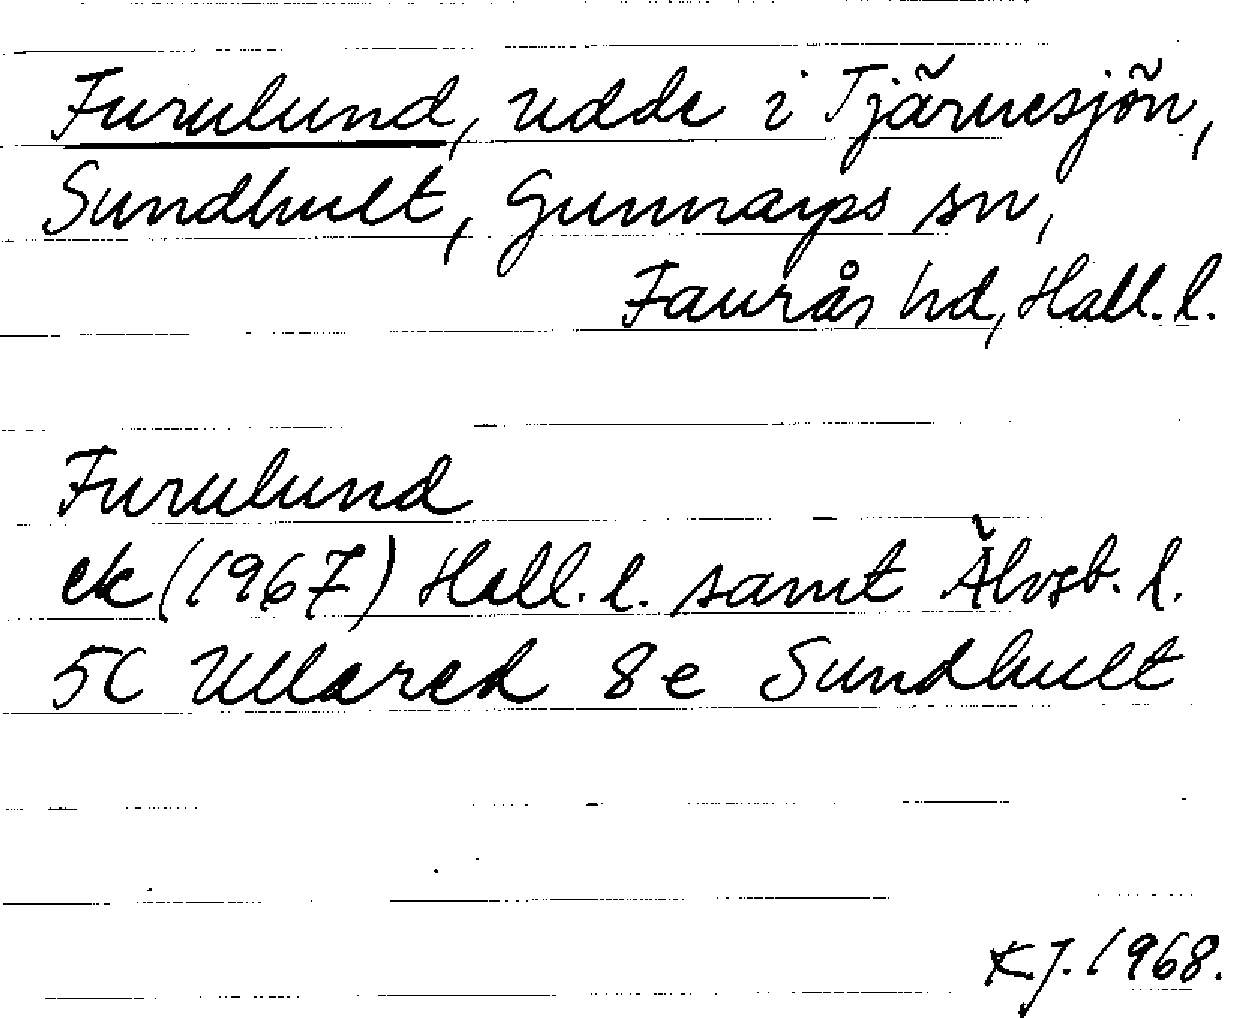 Furulund, udde i Tjärnesjön,
Sundhult, Gunnarps sn,
Faurås hd, Hall. l.
Furulund
ek (1967) Hall. l. samt Älvsb. l.
5C Ullared 8e Sundhult
K.J. 1968.